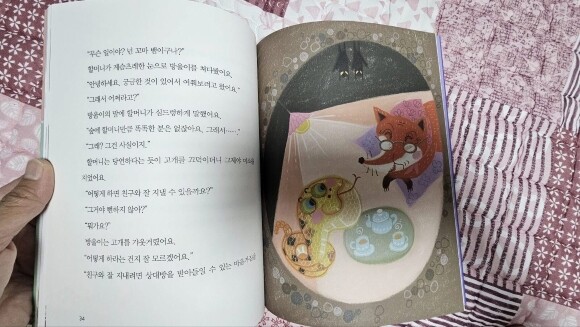 "무슨 일이야? 넌 꼬마 뱀이구나?"
할머니가 게슴츠레한 눈으로 방울이를 쳐다봤어요.
"안녕하세요. 궁금한 것이 있어서 여쭤보려고 왔어요."
"그래서 어쩌라고?"
방울이의 말에 할머니가 심드렁하게 말했어요.
"숲에 할머니만큼 똑똑한 분은 없잖아요. 그래서……."
"그래? 그건 사실이지."
할머니는 당연하다는 듯이 고개를 끄덕이더니 그제야 미소를
지었어요.
"어떻게 하면 친구와 잘 지낼 수 있을까요?"
"그거야 뻔하지 않아?"
"뭔가요?"
방울이는 고개를 갸웃거렸어요.
"어떻게 하라는 건지 잘 모르겠어요."
"친구와 잘 지내려면 상대방을 받아들일 수 있는 마음